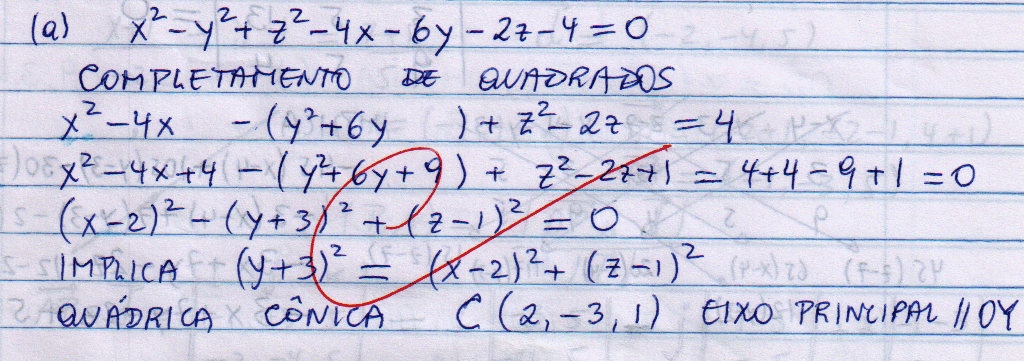 (a) x² - y² + z² - 4x - 6y - 2z - 4 = 0
COMPLETAMENTO DE QUADRADOS
x² - 4x - (y² + 6y ) + z² - 2z = 4
x² - 4x + 4 - (y² + 6y + 9) + z² - 2z + 1 = 4 + 4 - 9 + 1 = 0
(x - 2)² - (y + 3)² + (z - 1)² = 0
IMPLICA (y + 3)² = (x - 2)² + (z - 1)²
QUÁDRICA CÔNICA C (2, -3, 1) EIXO PRINCIPAL // OY